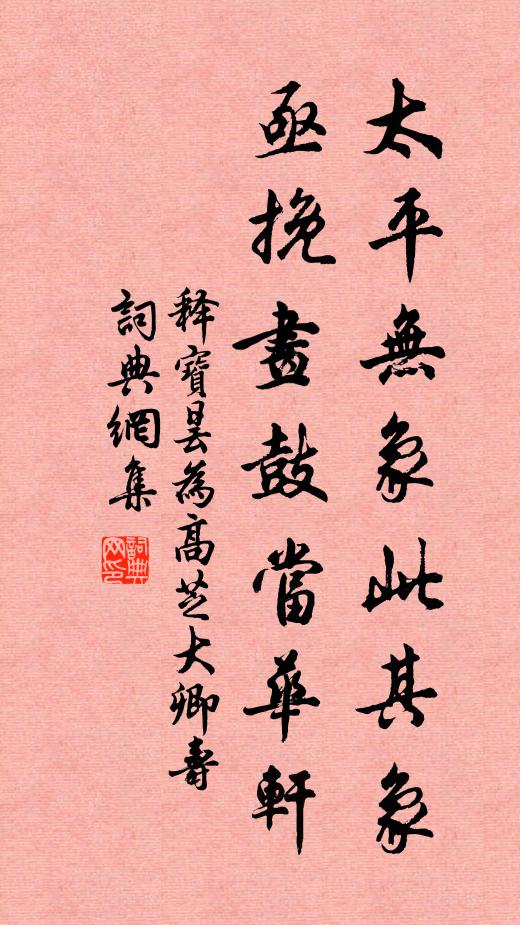 太平無象此其象
亟挽畫鼓當華軒
释寶曇為高芝大卿壽
詞典網集
詞典網印